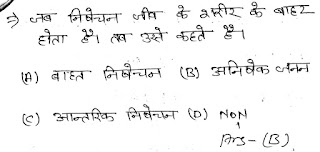 ⇒ जब निषेचन जीव के शरीर के बाहर
होता है। तब उसे कहते है।
(A) बाहत निषेचन (B) अनिषेक जनन
(C) आन्तरिक निषेचन (D) NON
Ans- (B)